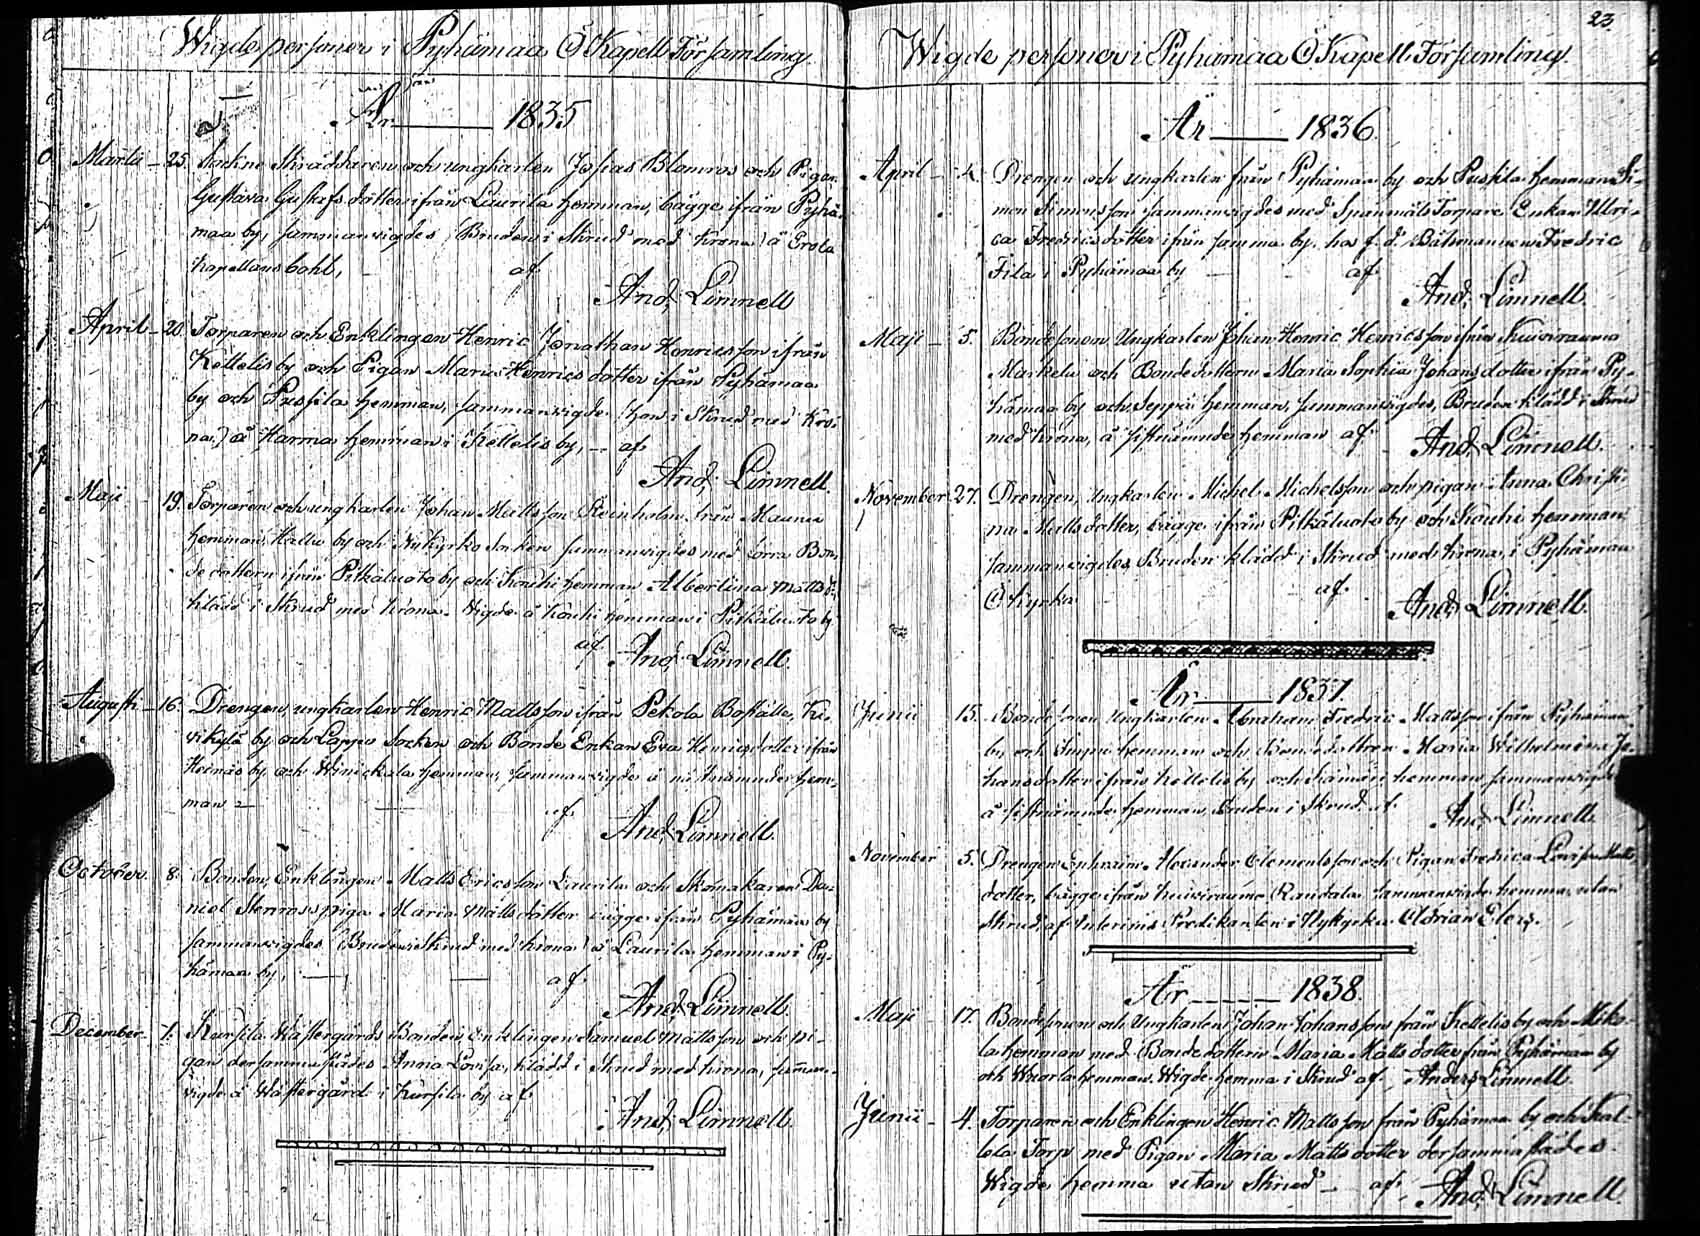 Wigde personer i Pyhämaa Ö Kapell Församling
År 1835
Martii 25. Sockne Skräddaren och ungkarlen Josias Blomros och Pigan
Gustava Gustafs dotter ifrån Laurila hemman, bägge ifrån Pyhä-
maa by, sammanvigdes (Bruden i Skrud med krona) å Erola
Kapellans bohl, af
And. Limnell
April 20. Torparen och Enklingen Henric Jonathan Henricsson ifrån
Kettelis by och Pigan Maria Henrics dotter ifrån Pyhämaa
by och Pusfila hemman, sammanvigde (hon i Skrud med Kro-
na) å Karma hemman i Kettelis by, af
And. Limnell.
Maji 19. Torparen och ungkarlen Johan Mattsson Steinholm från Maunu
hemman, by och Nykyrko Socken sammanvigdes med Bon-
de dottern ifrån Pitkäluoto by och Kouhi hemman Albertina Matts d:r
klädd i Skrud med krona. Wigde å Kouhi hemman i Pitkäluoto by
af And. Limnell.
Augusti 16. Drengen, ungkarlen Henric Mattsson ifrån Pekola Boställe,
by och Lappo Socken och Bonde Enkan Eva Henricsdotter ifrån
Heinäs by och Winickala hemman, sammanvigde å nästnämnde hem-
man af
And. Limnell.
October 8. Bonden, Enklingen Matts Ericsson Laurila och Skomakaren Da-
niel Stenross piga Maria Mattsdotter bägge ifrån Pyhämaa by
sammanvigdes (Bruden i Skrud med krona) å Laurila hemman i Py-
hämaa by, af
And. Limnell.
December 1. Kursila Wästergårds Bonden, Enklingen Samuel Mattsson och pi-
gan dersammastädes Anna Lovisa, klädd i Skrud med krona, samman-
vigde å Wästergård i Kursila by af
And. Limnell.
23.
Wigde personer i Pyhämaa Ö Kapell Församling.
År 1836.
April 4. Drengen och ungkarlen från Pyhämaa by och Pusfila hemman Si-
mon Simonsson sammanvigdes med Spanmåls Torpare Enkan Ulri-
ca Fredricsdotter ifrån samma by, ha f. d. Båtsmannen Fredric
Fila i Pyhämaa by af
And. Limnell
Maji 5. Bondesonen Ungkarlen Johan Henric Henricsson ifrån Kuivirauma
Markula och Bondedottern Maria Sophia Johansdotter ifrån Py-
hämaa by och Seppä hemman, sammanvigdes, Bruden klädd i Skrud
med krona, å sistnämnde hemman af And. Limnell.
November 27. Drengen, Ungkarlen Michel Michelsson och pigan Anna Christi-
na Mattsdotter, bägge ifrån Pitkäluoto by och Kouhi hemman
sammanvigdes, Bruden klädd i Skrud med krona, i Pyhämaa
Ö kyrka af
And. Limnell.
År 1837.
Junii 15. Bondesonen Ungkarlen Abraham Fredric Mattsson ifrån Pyhämaa
by och hemman och Bondedottren Maria Wilhelmina Jo-
hansdotter ifrån Kettelis by och hemman sammanvigde
å sistnämnde hemman, Bruden i Skrud af And. Limnell
November 5. Drengen Ephraim Alexander Clementsson och Pigan Fredrica Lovisa Matts
dotter, bägge ifrån Kuivirauma Randala sammanvigde hemma, utan
Skrud, af Interims Predikanten i Nykyrko Adrian Elers.
År 1838.
Maji 17. Bondesonen och Ungkarlen Johan Johansson från Kettelis by och Miko-
la hemman med Bondedottern Maria Mattsdotter från Pyhämaa by
och Wuorla hemman. Wigde hemma i Skrud af Anders Limnell.
Junii 4. Torparen och Enklingen Henric Mattsson från Pyhämaa by och Kal-
lola Torp med Pigan Maria Mattsdotter dersammastädes.
Wigde hemma utan Skrud af And. Limnell